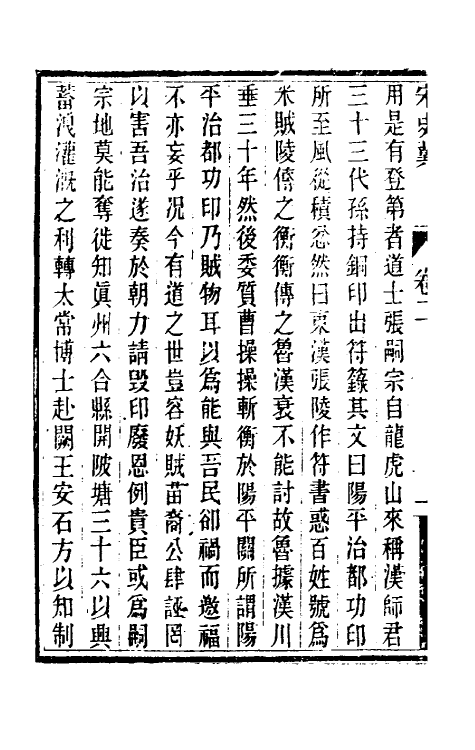 宋史翼 卷二
用是有登第者道士張嗣宗自龍虎山來稱漢師君
三十三代孫持銅印出符籙其文曰陽平治都功印
所至風從積忿然曰東漢張陵作符書惑百姓號為
米賊陵傳之衡衡傳之魯漢衰不能討故魯據漢川
垂三十年然後委質曹操操斬衡於陽平關所謂陽
平治都功印乃賊物耳以為能與吾民卻禍而邀福
不亦妄乎況今有道之世豈容妖賊苗裔公肆誣罔
以害吾治遂奏於朝力請毀印廢恩例貴臣或為嗣
宗地莫能奪徙知眞州六合縣開陂塘三十六以興
蓄洩灌溉之利轉太常博士赴闕王安石方以知制